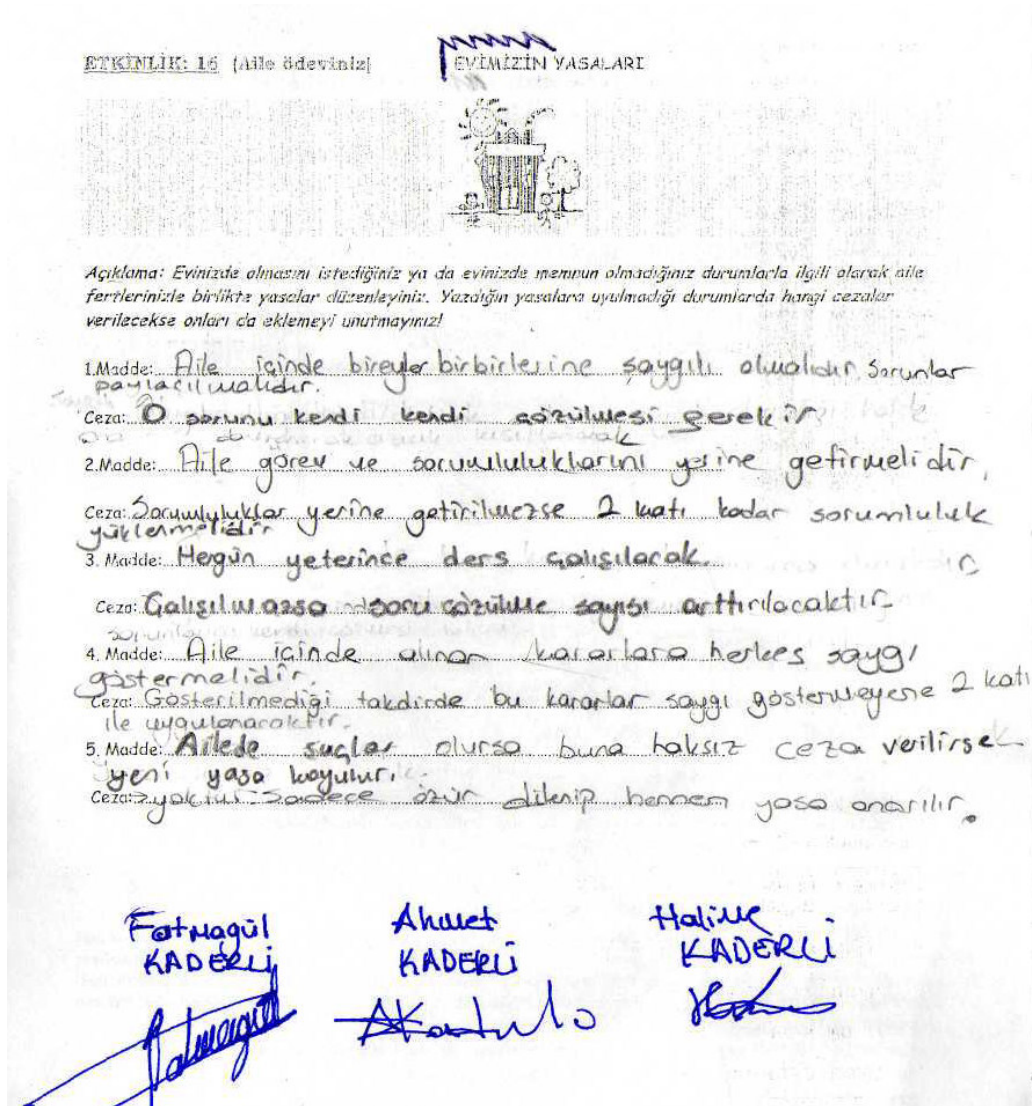 ETKİNLİK: 16 (Aile ödeviniz) EVİMİZİN YASALARI
Açıklama: Evinizde olmasını istediğiniz ya da evinizde memnun olmadığınız durumlarla ilgili olarak aile
fertlerinizle birlikte yasalar düzenleyiniz. Yazdığın yasalara uyulmadığı durumlarda hangi cezalar
verilecekse onları da eklemeyi unutmayınız!
1.Madde: Aile içinde bireyler birbirlerine saygılı olmalıdır. Sorunlar
paylaşılmalıdır.
Ceza: O sorunu kendi kendi çözülmesi gerekir
2.Madde: Aile görev ve sorumluluklarını yerine getirmelidir.
Ceza: Sorumluluklar yerine getirilmezse 2 katı kadar sorumluluk
yüklenmelidir
3. Madde: Hergün yeterince ders çalışılacak.
Ceza: Çalışılmazsa soru çözülme sayısı arttırılacaktır.
4. Madde: Aile içinde alınan kararlara herkes saygı
göstermelidir.
Ceza: Gösterilmediği takdirde bu kararlar saygı göstermeyene 2 katı
ile uygulanacaktır.
5. Madde: Ailede suçlar olursa buna haksız ceza verilirse
yeni yasa koyulur.
Ceza: yoktur sadece özür dilenip hemen yasa onarılır.
Fatmagül Ahmet Halime
KADERLİ KADERLİ KADERLİ
Fatmagül